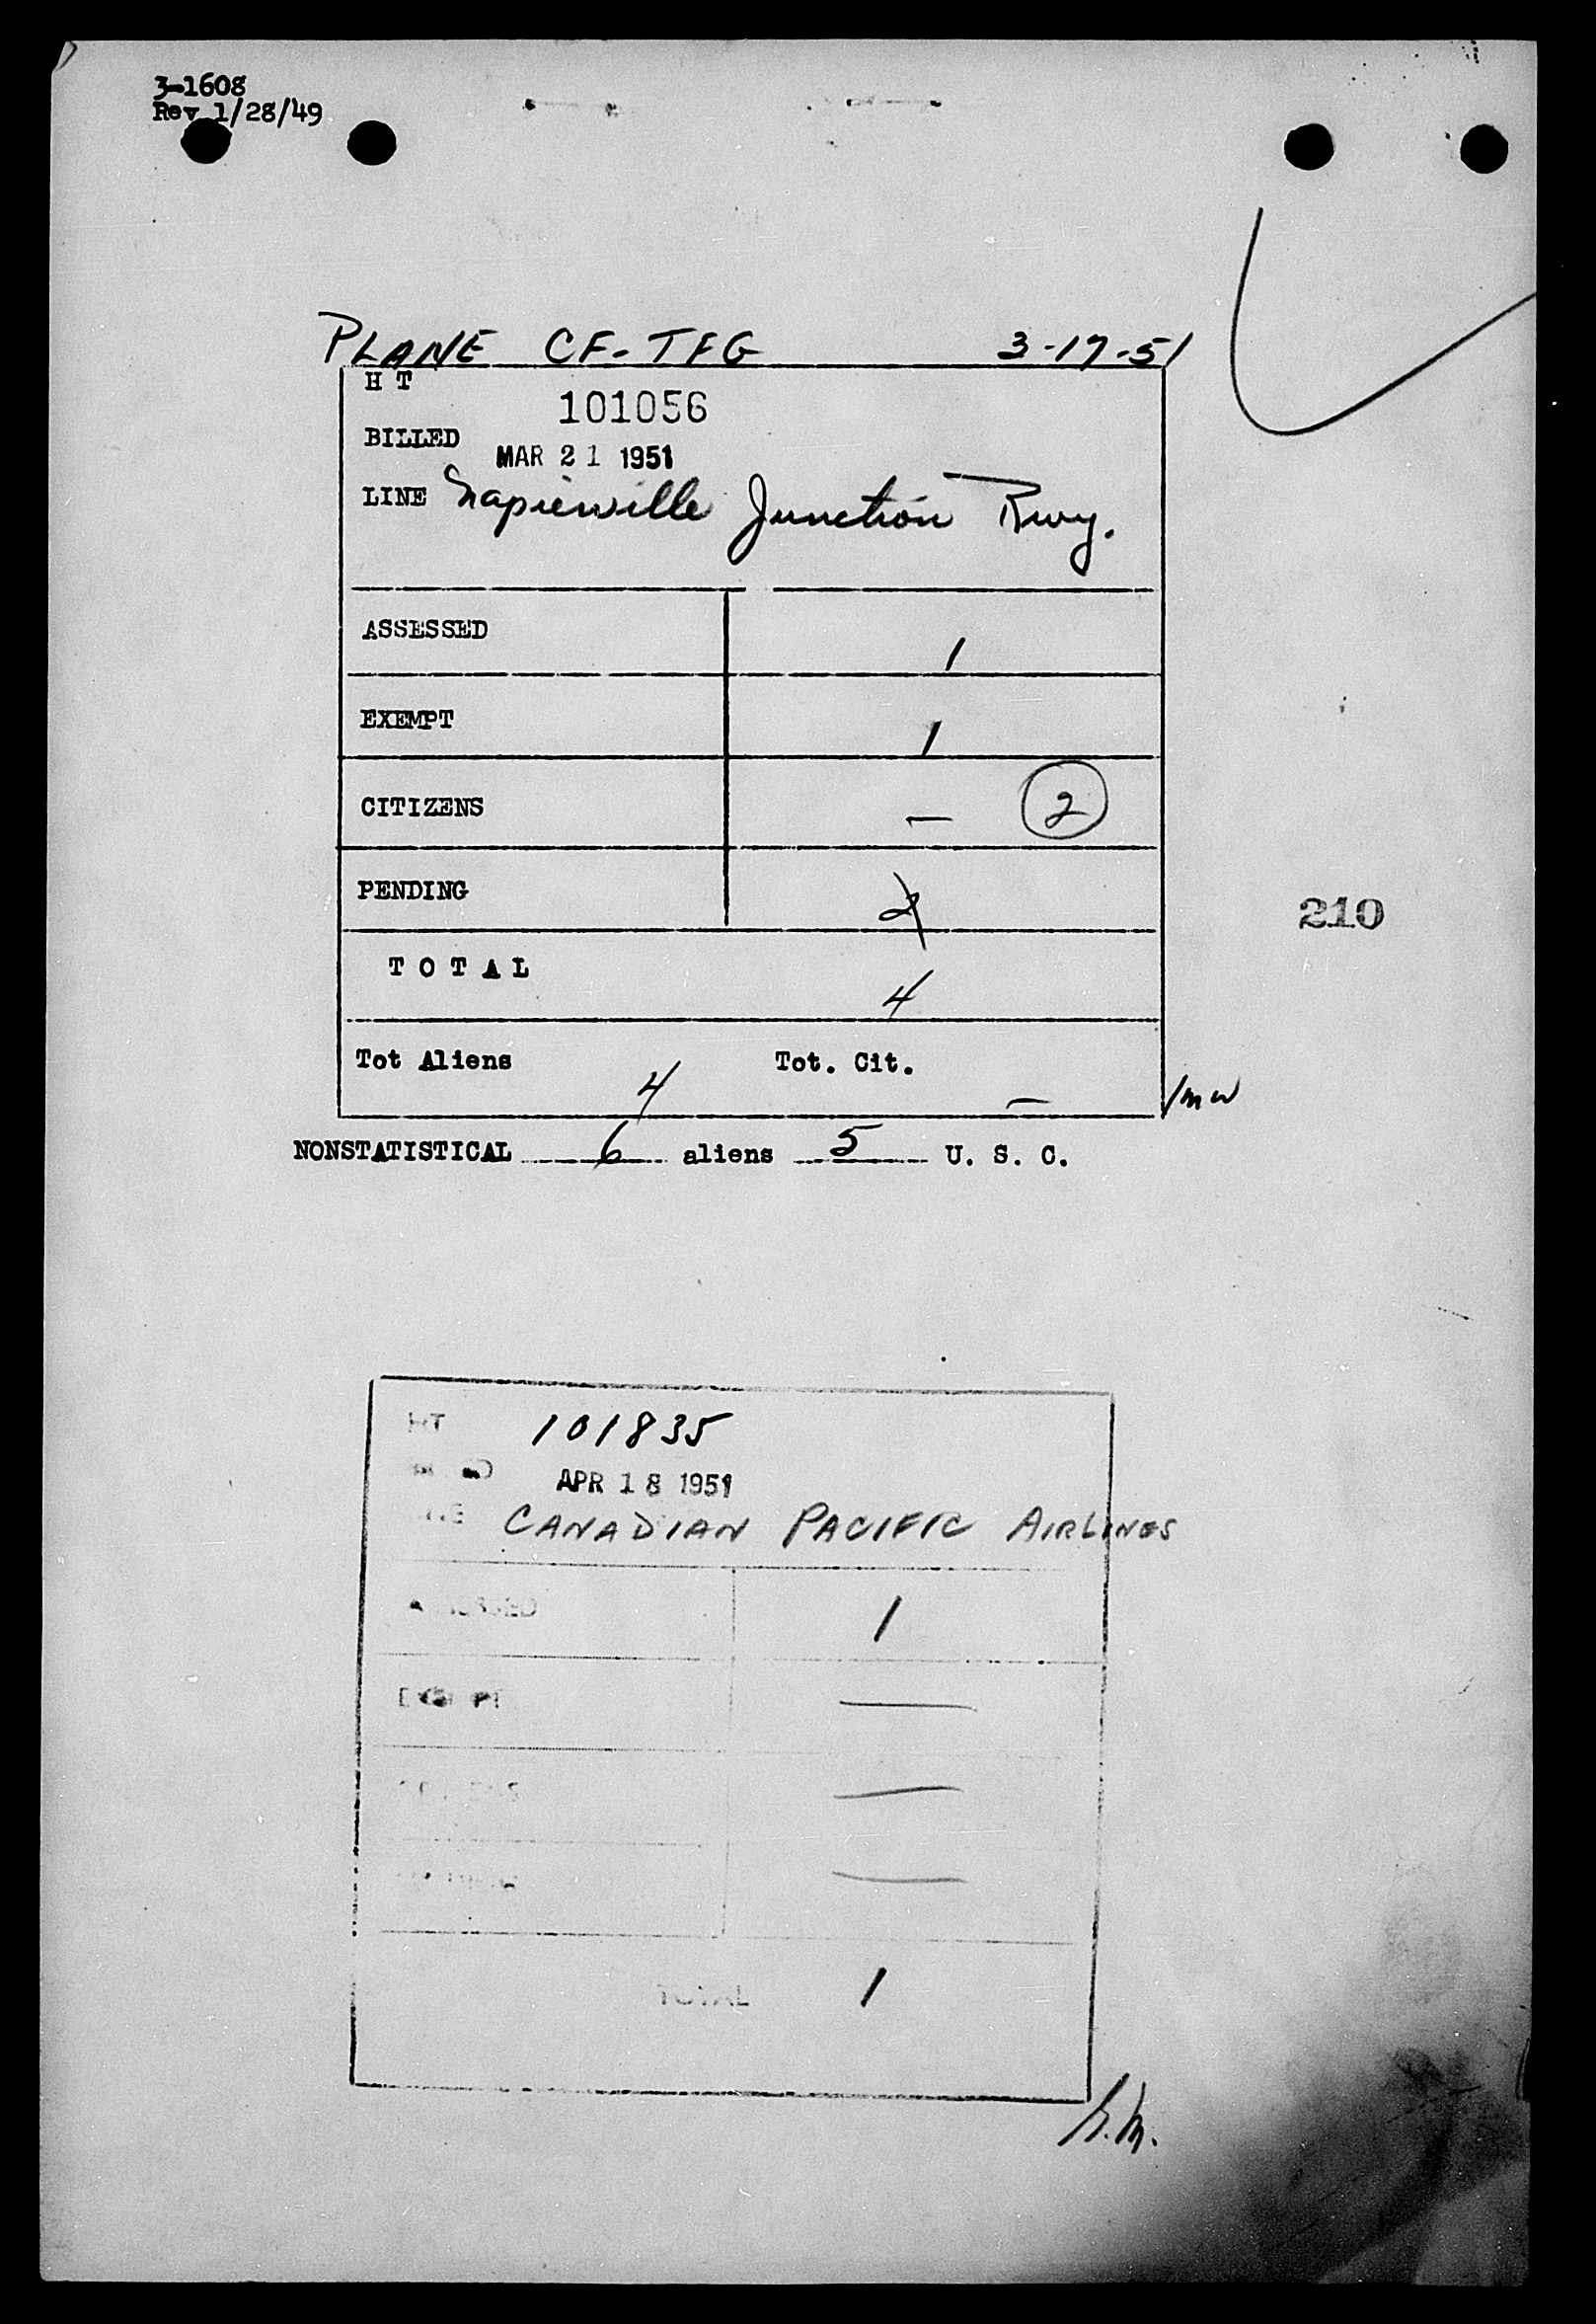 3-1608
Rev 1/28/49
PLANE CF-TFG 3-17-51
H T
101056
BILLED
MAR 21 1951
LINE Napierville Junction Rwy.
ASSESSED 1
EXEMPT 1
CITIZENS — 2
PENDING 2
210
T O T A L 4
Tot Aliens 4 Tot. Cit. —
/mw
NONSTATISTICAL 6 aliens 5 U. S. C.
HT 101835
APR 18 1951
CANADIAN PACIFIC AIRLINES
1
—
—
—
TOTAL 1